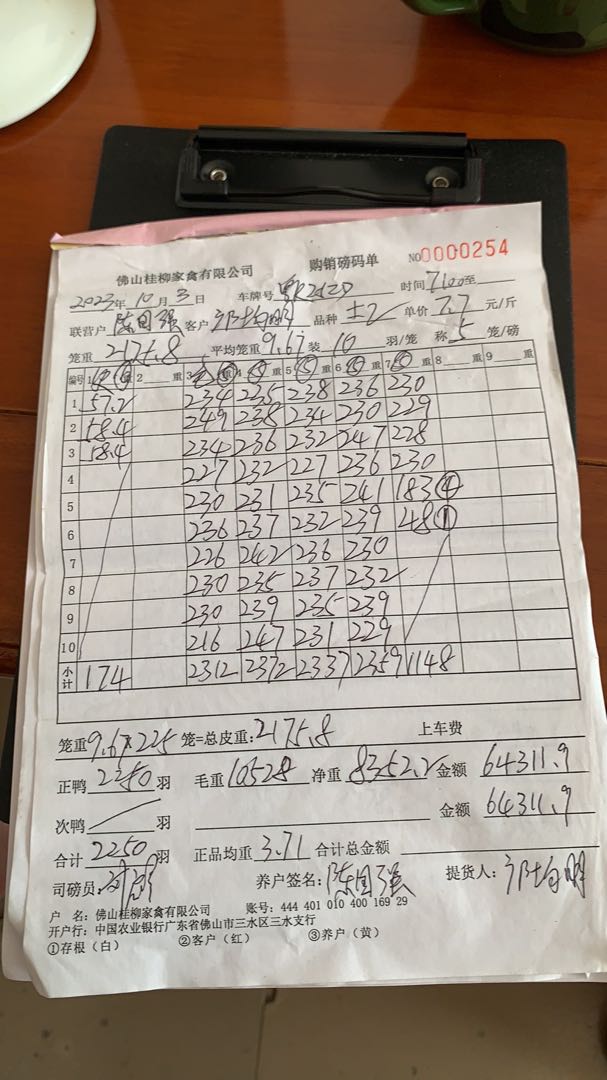 佛山桂柳家禽有限公司 购销磅码单 NO0000254
2023年10月3日 车牌号 时间7100至
联营户陈国强 客户 品种土2 单价7.7元/斤
笼重2175.8 平均笼重9.67 装10羽/笼 称5笼/磅
编号 1 重 2 重 3 重 4 重 5 重 6 重 7 重 8 重 9 重
1 57.2 234 225 238 236 230
2 58.4 249 238 234 230 229
3 58.4 234 236 232 247 228
4 227 232 227 236 230
5 230 231 235 241 183④
6 236 237 232 239 48①
7 226 242 236 230
8 230 235 237 232
9 230 239 235 239
10 216 247 231 229
小计 174 2312 2372 2337 2359 1148
笼重9.67×225笼=总皮重:2175.8 上车费
正鸭2250羽 毛重10528 净重8352.2 金额64311.9
次鸭 羽 金额64311.9
合计2250羽 正品均重3.71 合计总金额
司磅员: 养户签名:陈国强 提货人:
户 名:佛山桂柳家禽有限公司 账号:444 401 010 400 169 29
开户行:中国农业银行广东省佛山市三水区三水支行
①存根(白) ②客户(红) ③养户(黄)